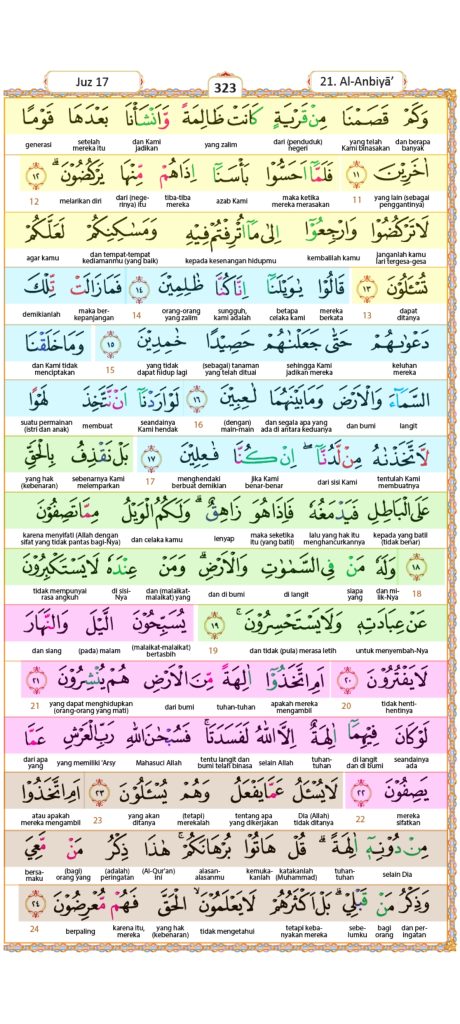 Juz 17
323
21. Al-Anbiyā’
وَكَمْ قَصَمْنَا مِنْ قَرْيَةٍ كَانَتْ ظَالِمَةً وَّاَنْشَأْنَا بَعْدَهَا قَوْمًا
dan berapa banyak yang telah Kami binasakan dari (penduduk) negeri yang zalim dan Kami jadikan setelah mereka itu generasi
اٰخَرِيْنَ ۝١١ فَلَمَّآ اَحَسُّوْا بَأْسَنَآ اِذَا هُمْ مِّنْهَا يَرْكُضُوْنَ ۗ ۝١٢
yang lain (sebagai penggantinya) 11 maka ketika mereka merasakan azab Kami tiba-tiba mereka dari (nege-rinya) itu melarikan diri 12
لَا تَرْكُضُوْا وَارْجِعُوْٓا اِلٰى مَآ اُتْرِفْتُمْ فِيْهِ وَمَسٰكِنِكُمْ لَعَلَّكُمْ
janganlah kamu lari tergesa-gesa kembalilah kamu kepada kesenangan hidupmu dan tempat-tempat kediamanmu (yang baik) agar kamu
تُسْـَٔلُوْنَ ۝١٣ قَالُوْا يٰوَيْلَنَآ اِنَّا كُنَّا ظٰلِمِيْنَ ۝١٤ فَمَا زَالَتْ تِّلْكَ
dapat ditanya 13 mereka berkata betapa celaka kami sungguh, kami adalah orang-orang yang zalim 14 maka ber-kepanjangan demikianlah
دَعْوٰىهُمْ حَتّٰى جَعَلْنٰهُمْ حَصِيْدًا خٰمِدِيْنَ ۝١٥ وَمَا خَلَقْنَا
keluhan mereka sehingga Kami jadikan mereka (sebagai) tanaman yang telah dituai yang tidak dapat hidup lagi 15 dan Kami tidak menciptakan
السَّمَاۤءَ وَالْاَرْضَ وَمَا بَيْنَهُمَا لٰعِبِيْنَ ۝١٦ لَوْ اَرَدْنَآ اَنْ نَّتَّخِذَ لَهْوًا
langit dan bumi dan segala apa yang ada di antara keduanya (dengan) main-main 16 seandainya Kami hendak membuat suatu permainan (istri dan anak)
لَّاتَّخَذْنٰهُ مِنْ لَّدُنَّآ ۖ اِنْ كُنَّا فٰعِلِيْنَ ۝١٧ بَلْ نَقْذِفُ بِالْحَقِّ
tentulah Kami membuatnya dari sisi Kami jika Kami benar-benar menghendaki berbuat demikian 17 sebenarnya Kami melemparkan yang hak (kebenaran)
عَلَى الْبَاطِلِ فَيَدْمَغُهٗ فَاِذَا هُوَ زَاهِقٌ ۗ وَلَكُمُ الْوَيْلُ مِمَّا تَصِفُوْنَ
kepada yang batil (tidak benar) lalu yang hak itu menghancurkannya maka seketika itu (yang batil) lenyap dan celaka kamu karena menyifati (Allah dengan sifat yang tidak pantas bagi-Nya)
۝١٨ وَلَهٗ مَنْ فِى السَّمٰوٰتِ وَالْاَرْضِ ۗ وَمَنْ عِنْدَهٗ لَا يَسْتَكْبِرُوْنَ
18 dan mi-lik-Nya siapa yang di langit dan di bumi dan (malaikat-malaikat) yang di sisi-Nya tidak mempunyai rasa angkuh
عَنْ عِبَادَتِهٖ وَلَا يَسْتَحْسِرُوْنَ ۚ ۝١٩ يُسَبِّحُوْنَ الَّيْلَ وَالنَّهَارَ
untuk menyembah-Nya dan tidak (pula) merasa letih 19 (malaikat-malaikat) bertasbih (pada) malam dan siang
لَا يَفْتُرُوْنَ ۝٢٠ اَمِ اتَّخَذُوْٓا اٰلِهَةً مِّنَ الْاَرْضِ هُمْ يُنْشِرُوْنَ ۝٢١
tidak henti-hentinya 20 apakah mereka mengambil tuhan-tuhan dari bumi yang dapat menghidupkan (orang-orang yang mati) 21
لَوْ كَانَ فِيْهِمَآ اٰلِهَةٌ اِلَّا اللّٰهُ لَفَسَدَتَا ۚ فَسُبْحٰنَ اللّٰهِ رَبِّ الْعَرْشِ عَمَّا
seandainya ada di langit dan di bumi tuhan-tuhan selain Allah tentu langit dan bumi telah binasa Mahasuci Allah yang memiliki 'Arsy dari apa yang
يَصِفُوْنَ ۝٢٢ لَا يُسْـَٔلُ عَمَّا يَفْعَلُ وَهُمْ يُسْـَٔلُوْنَ ۝٢٣ اَمِ اتَّخَذُوْا
mereka sifatkan 22 Dia (Allah) tidak ditanya tentang apa yang dikerjakan (tetapi) merekalah yang akan ditanya 23 atau apakah mereka mengambil
مِنْ دُوْنِهٖٓ اٰلِهَةً ۗ قُلْ هَاتُوْا بُرْهَانَكُمْ ۚ هٰذَا ذِكْرُ مَنْ مَّعِيَ
selain Dia tuhan-tuhan katakanlah (Muhammad) kemuka-kanlah alasan-alasanmu (Al-Qur'an) ini (adalah) peringatan (bagi) orang yang bersa-maku
وَذِكْرُ مَنْ قَبْلِيْ ۗ بَلْ اَكْثَرُهُمْ لَا يَعْلَمُوْنَ ۙ الْحَقَّ فَهُمْ مُّعْرِضُوْنَ ۝٢٤
dan per-ingatan bagi orang sebe-lumku tetapi keba-nyakan mereka tidak mengetahui yang hak (kebenaran) karena itu, mereka berpaling 24